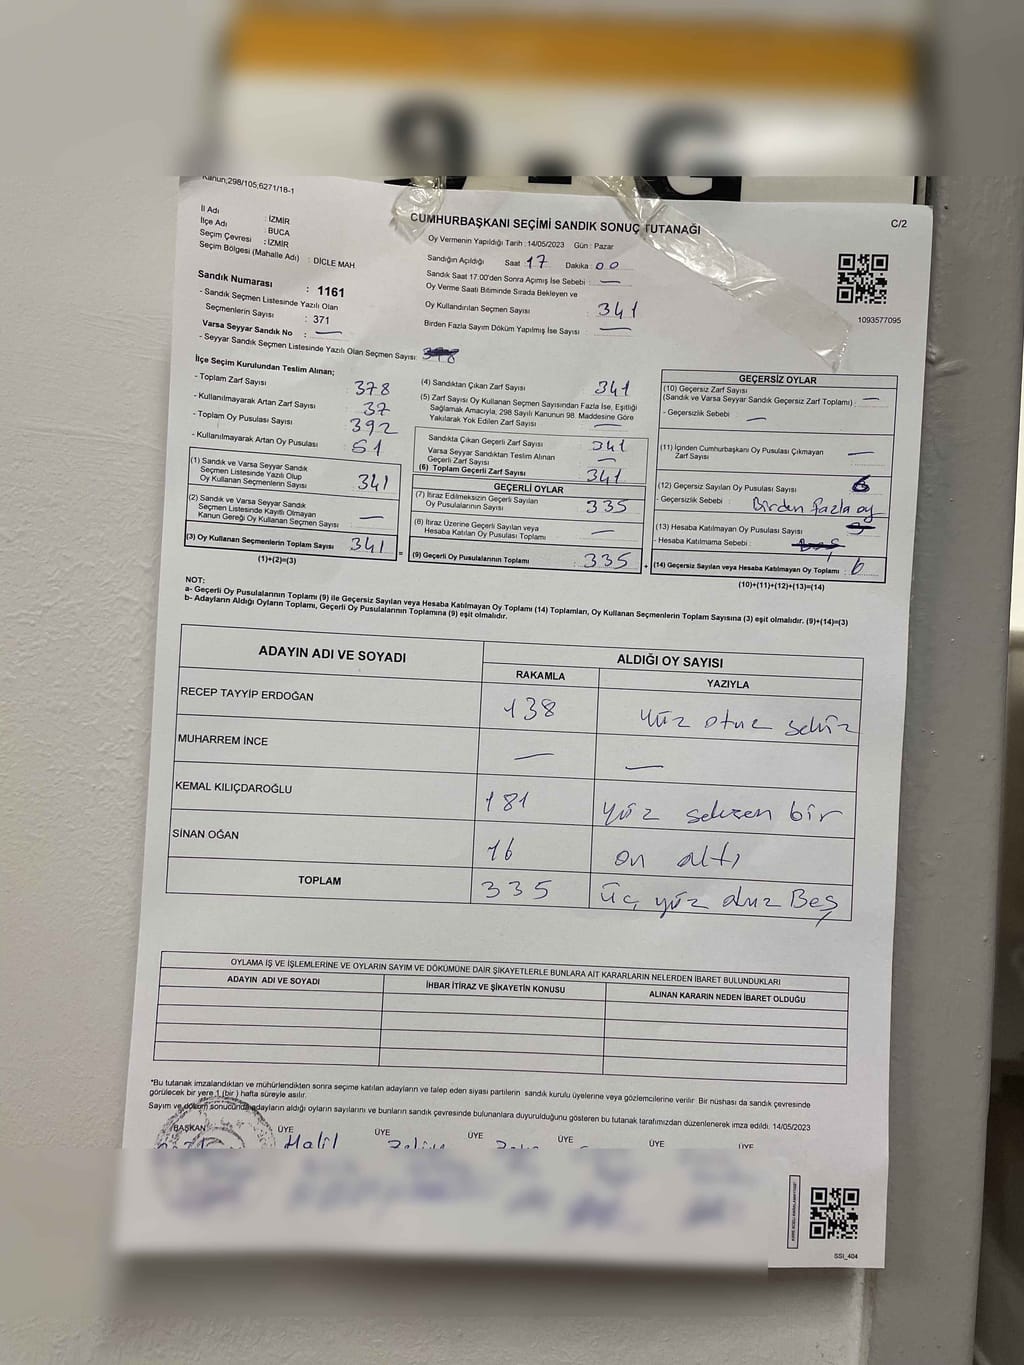 9-G
Kanun;298/105,6271/18-1
CUMHURBAŞKANI SEÇİMİ SANDIK SONUÇ TUTANAĞI
C/2
İl Adı : İZMİR
İlçe Adı : BUCA
Seçim Çevresi : İZMİR
Seçim Bölgesi (Mahalle Adı) : DİCLE MAH
Sandık Numarası : 1161
- Sandık Seçmen Listesinde Yazılı Olan
Seçmenlerin Sayısı : 371
Varsa Seyyar Sandık No : —
- Seyyar Sandık Seçmen Listesinde Yazılı Olan Seçmen Sayısı:
Oy Vermenin Yapıldığı Tarih : 14/05/2023 Gün : Pazar
Sandığın Açıldığı Saat 17 Dakika 00
Sandık Saat 17:00'den Sonra Açımış İse Sebebi : —
Oy Verme Saati Bitiminde Sırada Bekleyen ve
Oy Kullandırılan Seçmen Sayısı : 341
Birden Fazla Sayım Döküm Yapılmış İse Sayısı : —
1093577095
İlçe Seçim Kurulundan Teslim Alınan;
- Toplam Zarf Sayısı : 378
- Kullanılmayarak Artan Zarf Sayısı : 37
- Toplam Oy Pusulası Sayısı : 392
- Kullanılmayarak Artan Oy Pusulası : 51
(1) Sandık ve Varsa Seyyar Sandık
Seçmen Listesinde Yazılı Olup
Oy Kullanan Seçmenlerin Sayısı : 341
(2) Sandık ve Varsa Seyyar Sandık
Seçmen Listesinde Kayıtlı Olmayan
Kanun Gereği Oy Kullanan Seçmen Sayısı : —
(3) Oy Kullanan Seçmenlerin Toplam Sayısı : 341
(1)+(2)=(3)
(4) Sandıktan Çıkan Zarf Sayısı : 341
(5) Zarf Sayısı Oy Kullanan Seçmen Sayısından Fazla İse, Eşitliği
Sağlamak Amacıyla, 298 Sayılı Kanunun 98. Maddesine Göre
Yakılarak Yok Edilen Zarf Sayısı : —
Sandıkta Çıkan Geçerli Zarf Sayısı : 341
Varsa Seyyar Sandıktan Teslim Alınan
Geçerli Zarf Sayısı : —
(6) Toplam Geçerli Zarf Sayısı : 341
GEÇERLİ OYLAR
(7) İtiraz Edilmeksizin Geçerli Sayılan
Oy Pusulalarının Sayısı : 335
(8) İtiraz Üzerine Geçerli Sayılan veya
Hesaba Katılan Oy Pusulası Toplamı : —
= (9) Geçerli Oy Pusulalarının Toplamı : 335
GEÇERSİZ OYLAR
(10) Geçersiz Zarf Sayısı
(Sandık ve Varsa Seyyar Sandık Geçersiz Zarf Toplamı) : —
- Geçersizlik Sebebi : —
(11) İçinden Cumhurbaşkanı Oy Pusulası Çıkmayan
Zarf Sayısı : —
(12) Geçersiz Sayılan Oy Pusulası Sayısı : 6
- Geçersizlik Sebebi : Birden fazla oy
(13) Hesaba Katılmayan Oy Pusulası Sayısı :
- Hesaba Katılmama Sebebi :
+ (14) Geçersiz Sayılan veya Hesaba Katılmayan Oy Toplamı : 6
(10)+(11)+(12)+(13)=(14)
NOT:
a- Geçerli Oy Pusulalarının Toplamı (9) ile Geçersiz Sayılan veya Hesaba Katılmayan Oy Toplamı (14) Toplamları, Oy Kullanan Seçmenlerin Toplam Sayısına (3) eşit olmalıdır. (9)+(14)=(3)
b- Adayların Aldığı Oyların Toplamı, Geçerli Oy Pusulalarının Toplamına (9) eşit olmalıdır.
ADAYIN ADI VE SOYADI
ALDIĞI OY SAYISI
RAKAMLA YAZIYLA
RECEP TAYYİP ERDOĞAN 138 yüz otuz sekiz
MUHARREM İNCE — —
KEMAL KILIÇDAROĞLU 181 yüz seksen bir
SİNAN OĞAN 16 on altı
TOPLAM 335 üç yüz otuz Beş
OYLAMA İŞ VE İŞLEMLERİNE VE OYLARIN SAYIM VE DÖKÜMÜNE DAİR ŞİKAYETLERLE BUNLARA AİT KARARLARIN NELERDEN İBARET BULUNDUKLARI
ADAYIN ADI VE SOYADI İHBAR İTİRAZ VE ŞİKAYETİN KONUSU ALINAN KARARIN NEDEN İBARET OLDUĞU
*Bu tutanak imzalandıktan ve mühürlendikten sonra seçime katılan adayların ve talep eden siyasi partilerin sandık kurulu üyelerine veya gözlemcilerine verilir. Bir nüshası da sandık çevresinde
görülecek bir yere 1 (bir) hafta süreyle asılır.
Sayım ve döküm sonucunda adayların aldığı oyların sayılarını ve bunların sandık çevresinde bulunanlara duyurulduğunu gösteren bu tutanak tarafımızdan düzenlenerek imza edildi. 14/05/2023
BAŞKAN ÜYE ÜYE ÜYE ÜYE ÜYE ÜYE
Halil
SSI_404